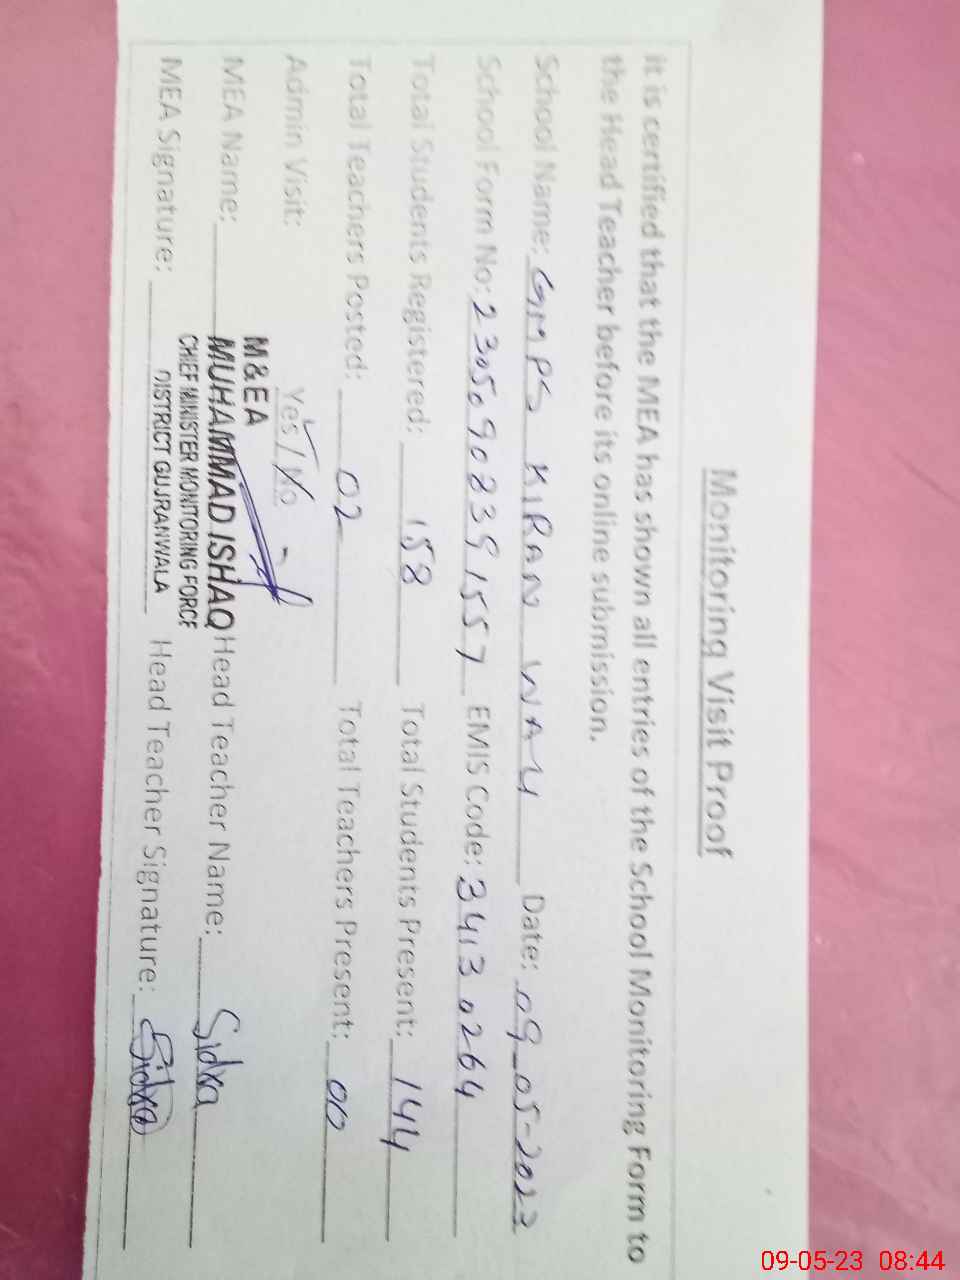 Monitoring Visit Proof
it is certified that the MEA has shown all entries of the School Monitoring Form to
the Head Teacher before its online submission.
School Name: GMPS KIRAN WALI Date: 09-05-2023
School Form No: 2305090839157 EMIS Code: 34130264
Total Students Registered: 158 Total Students Present: 144
Total Teachers Posted: 02 Total Teachers Present: 00
Admin Visit: Yes / No
M&EA
MEA Name: MUHAMMAD ISHAQ Head Teacher Name: Sidra
CHIEF MINISTER MONITORING FORCE
MEA Signature: DISTRICT GUJRANWALA Head Teacher Signature: Sidra
09-05-23 08:44